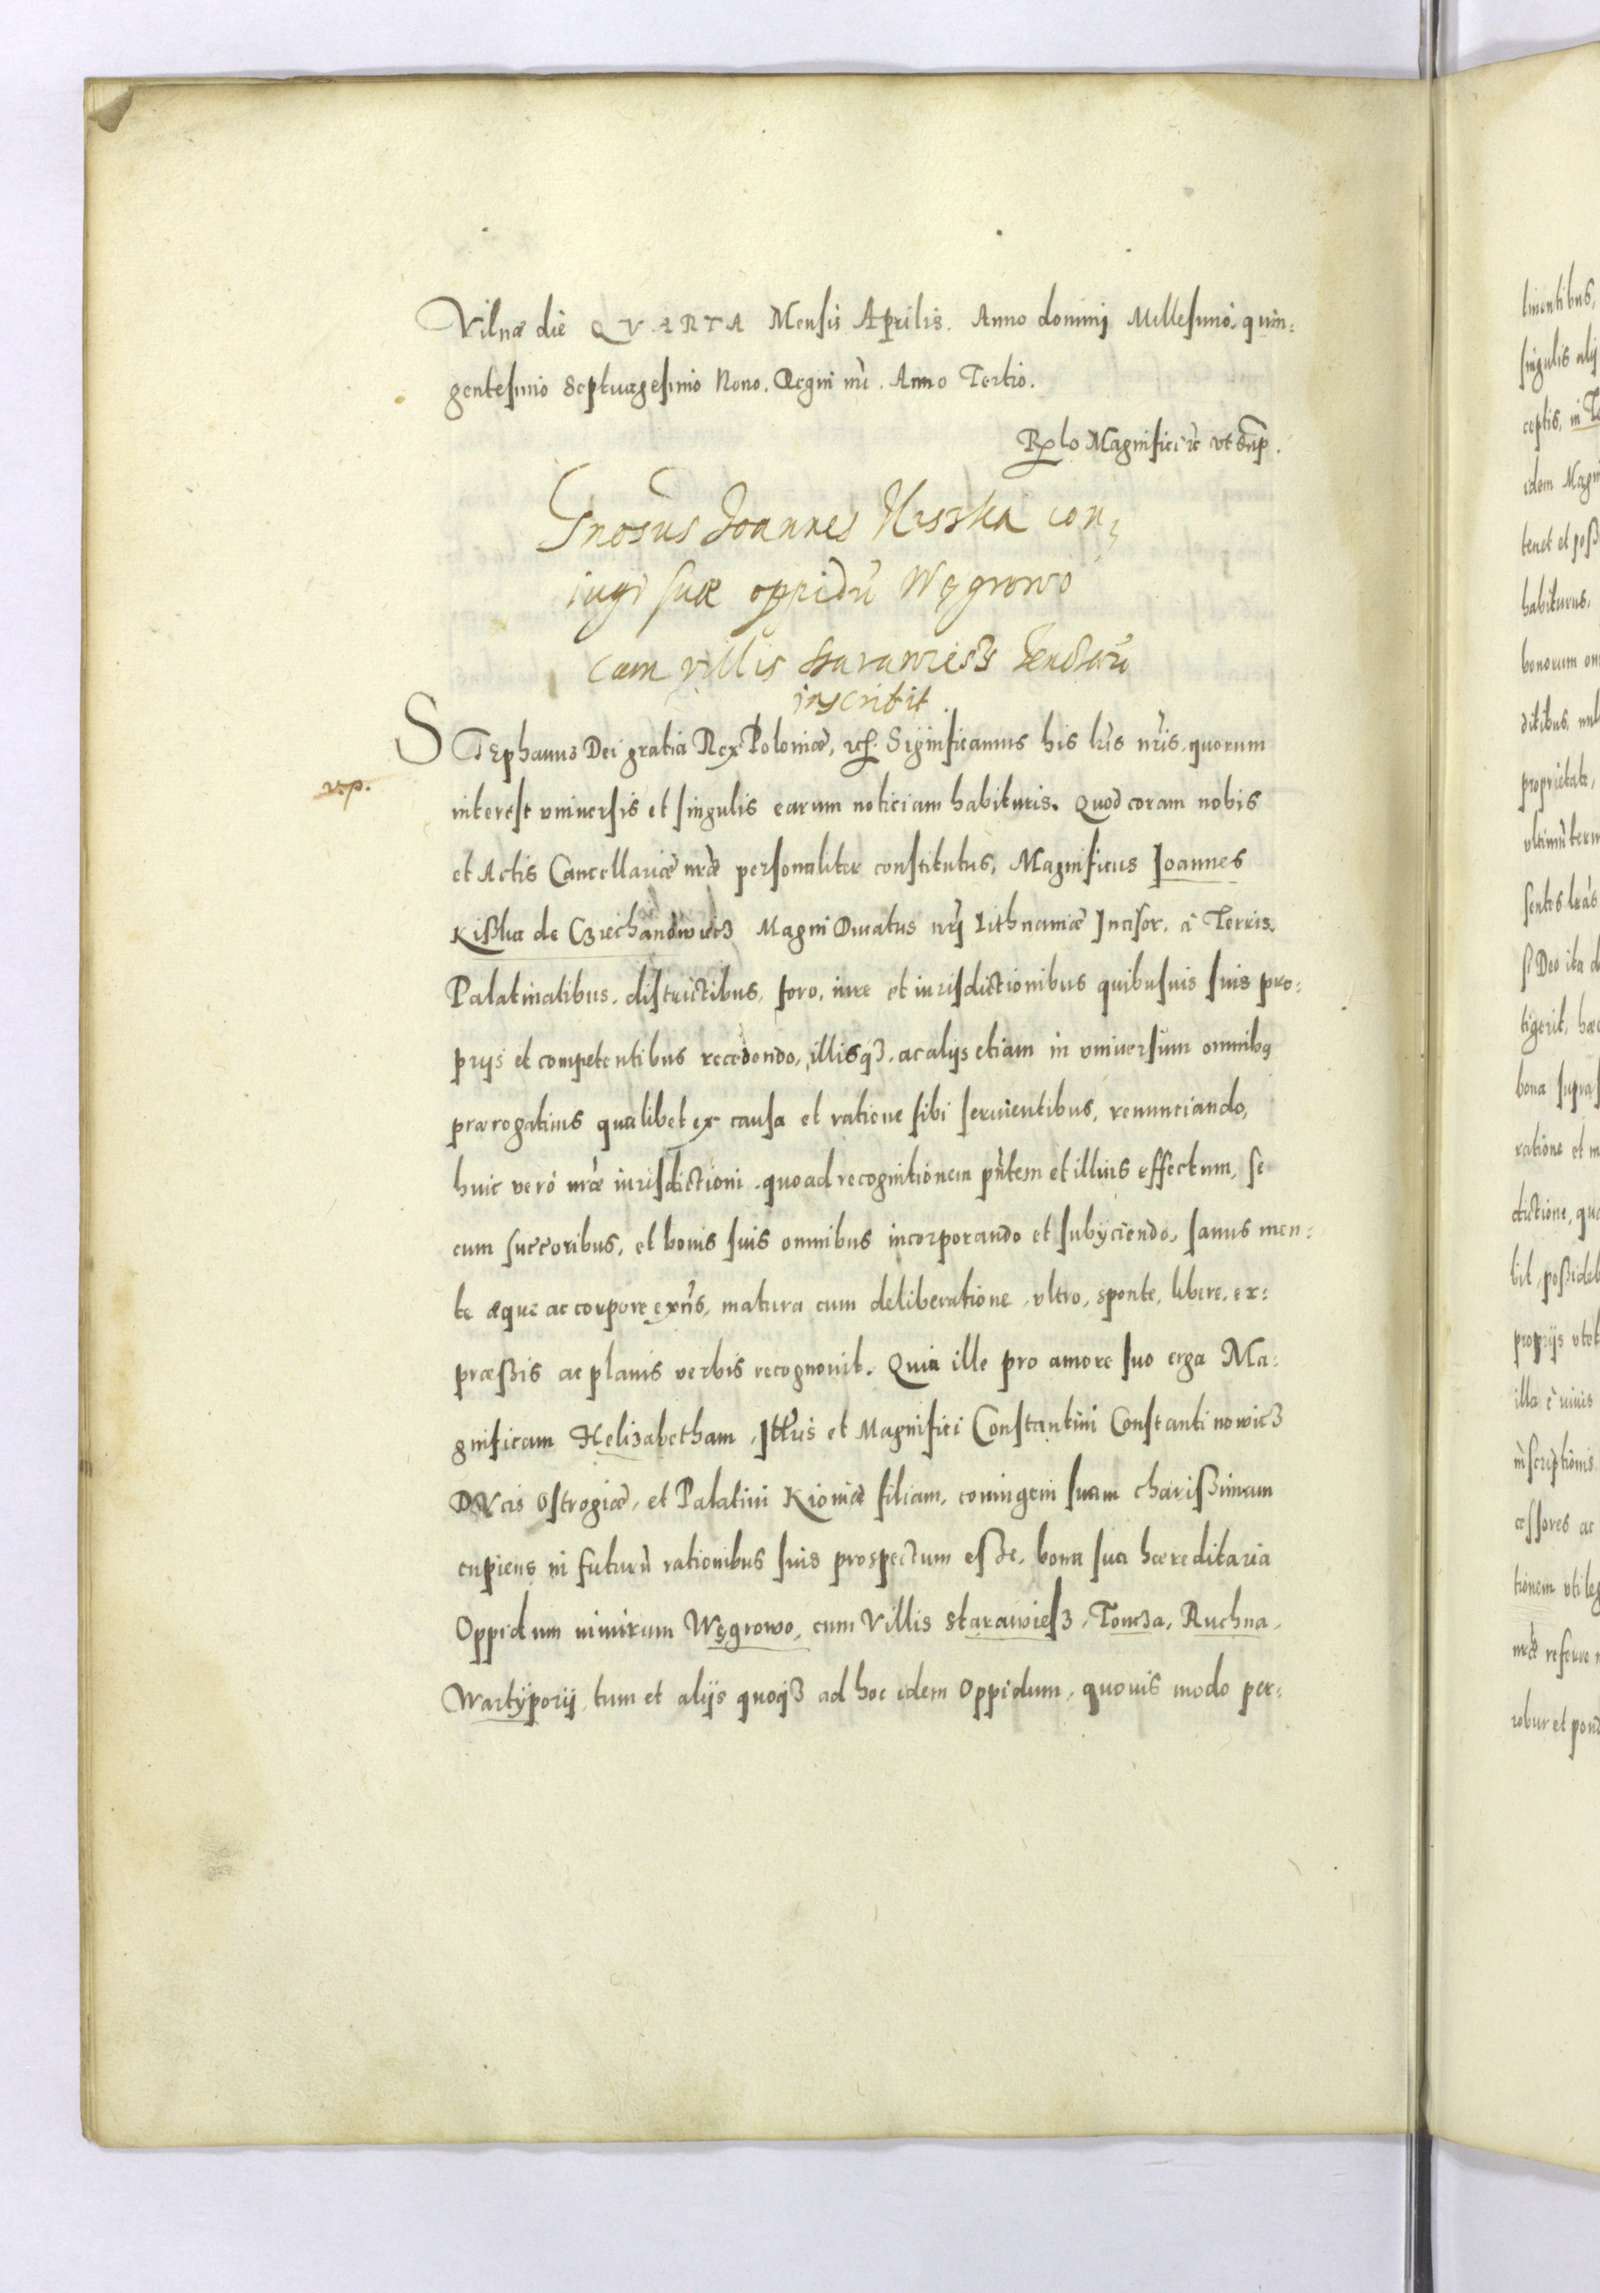 Vilnæ die QVARTA Mensis Aprilis. Anno dominj Millesimo. quin:
gentesimo Septuagesimo Nono. Regni nri. Anno Tertio.
Rlo Magnifici rc vt sup.
Gnosus Joannes Kisska con
iugi suæ oppidū Węgrowo
cum villis Starawiesz
inscribit.
STEphanus Dei gratia Rex Poloniæ, rc. Significamus his lris nris. quorum
vrp.
interest vniuersis et singulis earum noticiam habituris. Quod coram nobis
et Actis Cancellariæ nræ personaliter constitutus, Magnificus Joannes
Kißka de Czechanowicz Magni Ducatus nrj Lithuaniæ Incisor, à Terris.
Palatinatibus. districtibus, foro, iure et iurisdictionibus quibusuis suis pro:
prijs et competentibus recedendo, illisq3, ac alijs etiam in vniuersum omnibq
prærogatiuis qualibet ex causa et ratione sibi seruientibus, renunciando,
huic verò nræ iurisdictioni. quoad recognitionem pñtem et illius effectum, se
cum succoribus, et bonis suis omnibus incorporando et subijciendo, sanus men:
te æque ac corpore exñs, matura cum deliberatione, vltro, sponte, libere, ex:
præßis ac planis verbis recognouit. Quia ille pro amore suo erga Ma:
gnificam Helizabetham, Jllris et Magnifici Constantini Constantinowicz
DVcis Ostrogiæ, et Palatini Kiouiæ filiam, coniugem suam charißimam
cupiens in futurū rationibus suis prospectum eße, bona sua hæreditaria
Oppidum nimirum Węgrowo, cum Villis Starawiesz, Toncza, Ruchna,
Wartÿporij, tum et alijs quoq3 ad hoc idem Oppidum, quouis modo per:
linentibus,
singulis alij
ceptis, in Te
idem Magni
tenet et poß
habiturus,
bonorum om
ditibus, nul
proprietate,
vltimū term
sentes lras
si Deo ita d
tigerit, hæc
bona supras
ratione et m
dictione, qua
bit, poßideb
proprijs vtet
illa è viuis
inscriptionis
cessores ac
tionem vti leg
nræ reseruo
robur et pond